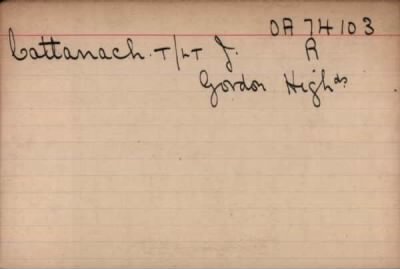 OA 74103
Cattanach. T/LT J. R
Gordon Highds